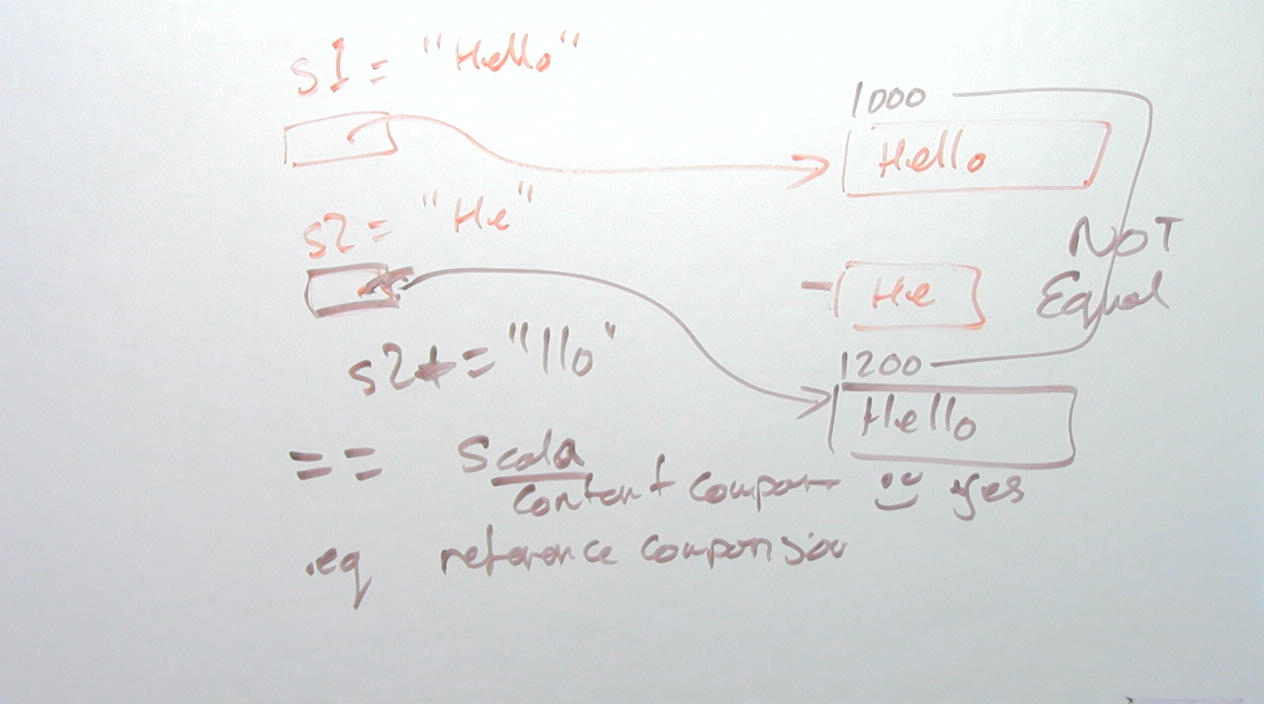 s1 = "Hello"
1000
Hello
s2 = "He"
NOT
Equal
He
s2+= "llo"
1200
Hello
== Scala
content compar yes
.eq reference comparision